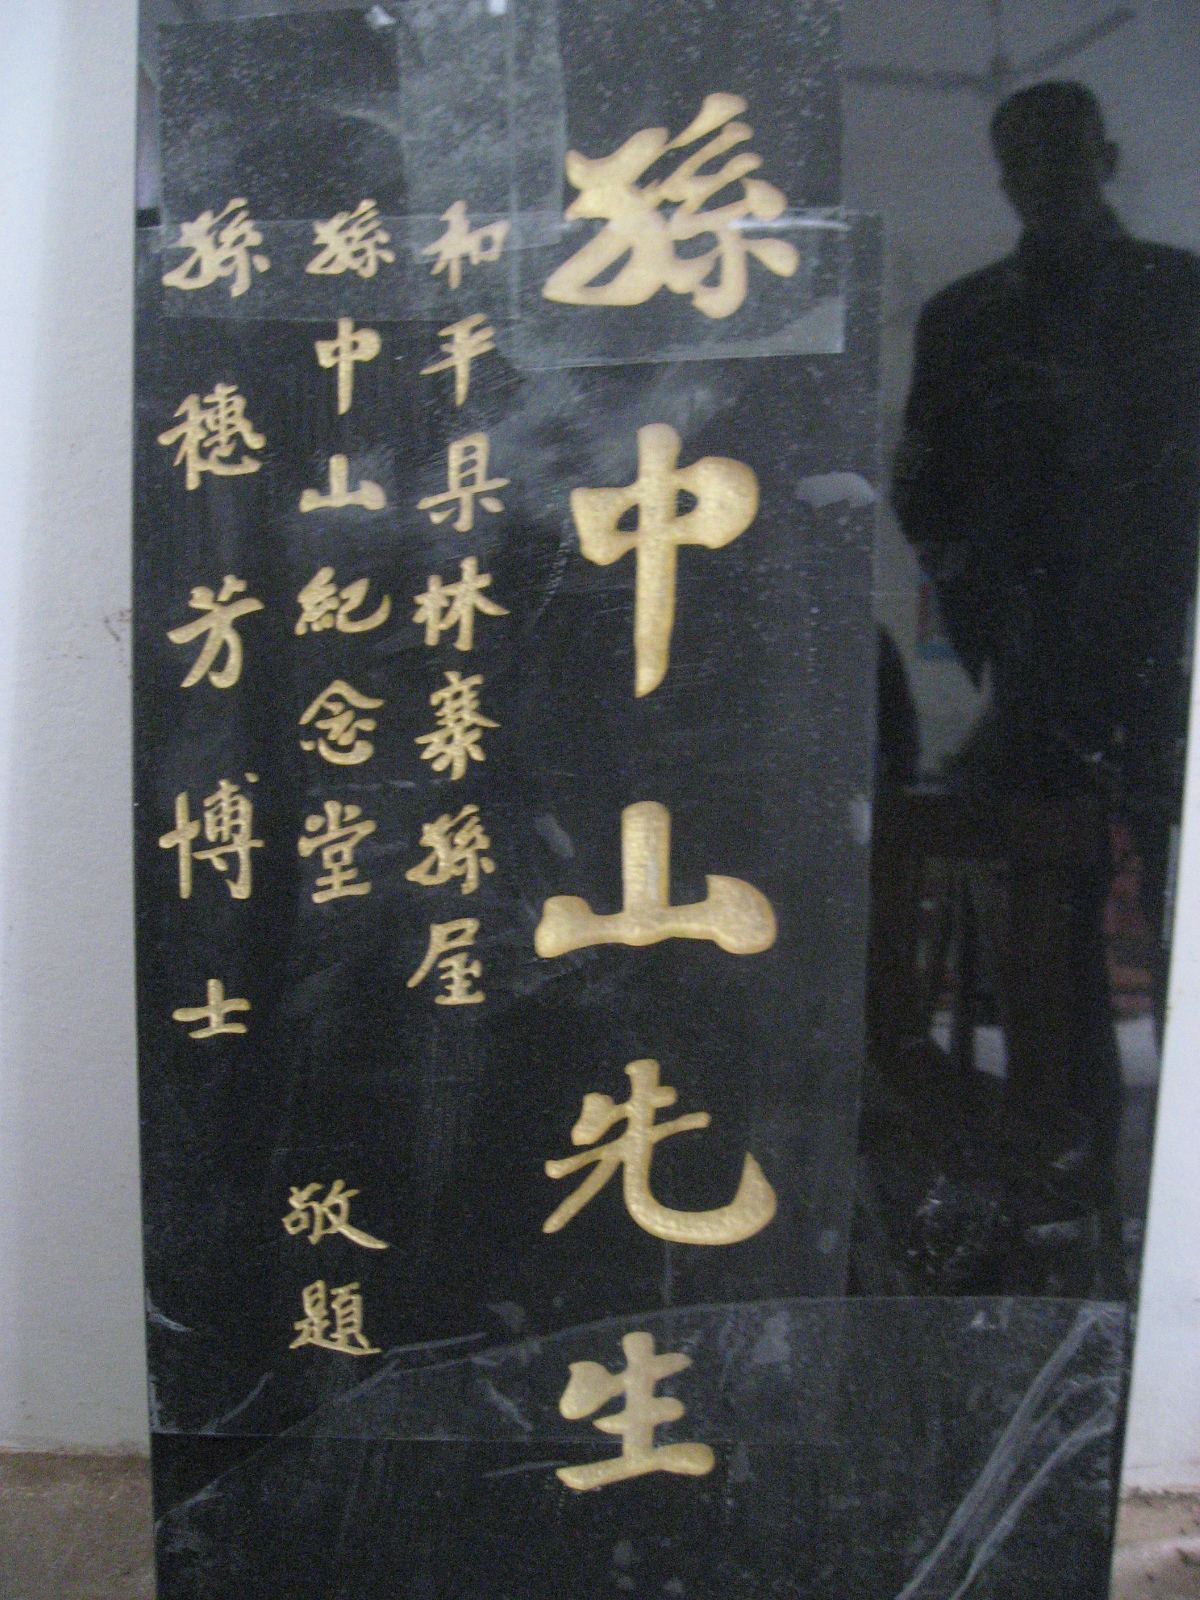 孫中山先生
和平具林寨孫屋
孫中山紀念堂
敬題
孫穗芳博士